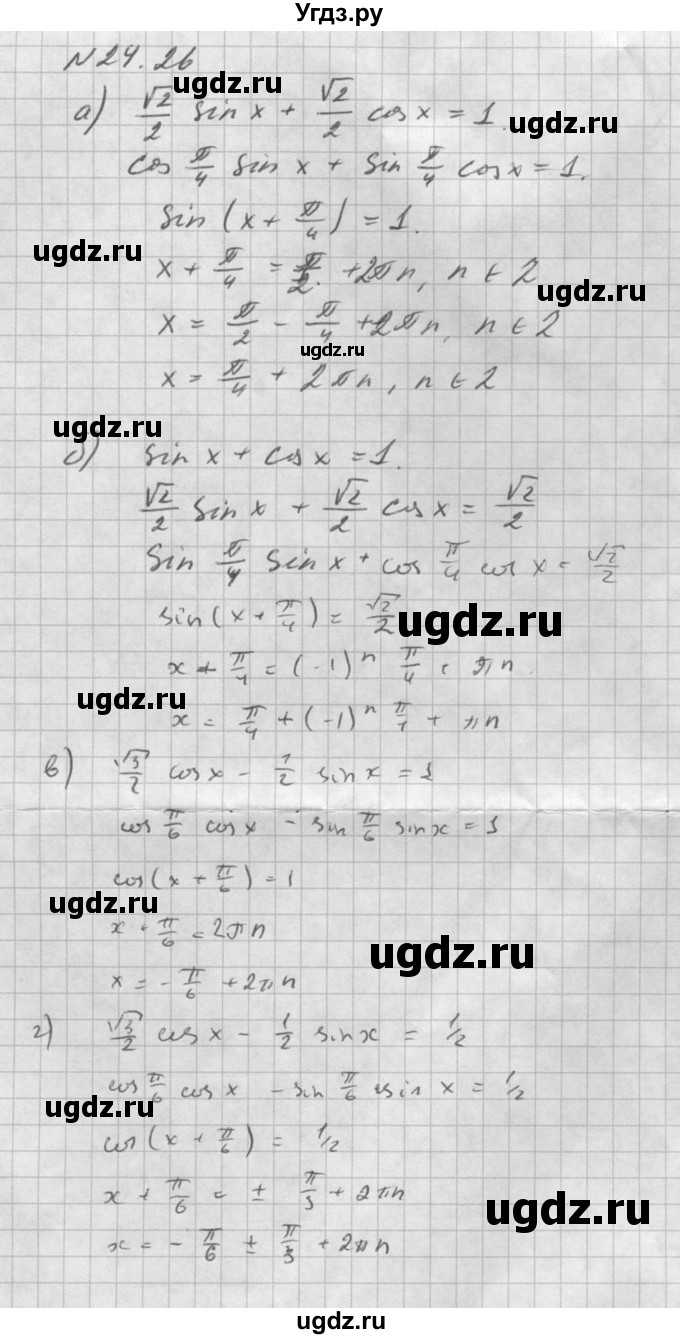 Угдз.ру
N 24.26
ugdz.ru
а) √2/2 sin x + √2/2 cos x = 1.
ugdz.ru
cos π/4 sin x + sin π/4 cos x = 1.
sin (x + π/4) = 1.
ugdz.ru
x + π/4 = π/2. + 2πn, n ∈ Z
ugdz.ru
x = π/2 - π/4 + 2πn, n ∈ Z
ugdz.ru
x = π/4 + 2πn, n ∈ Z
ugdz.ru
б) sin x + cos x = 1.
√2/2 sin x + √2/2 cos x = √2/2
ugdz.ru
sin π/4 sin x + cos π/4 cos x = √2/2
sin(x + π/4) = √2/2
ugdz.ru
x + π/4 = (-1)^n π/4 + πn.
ugdz.ru
x = π/4 + (-1)^n π/4 + πn
в) √3/2 cos x - 1/2 sin x = 1
ugdz.ru
cos π/6 cos x - sin π/6 sin x = 1
cos(x + π/6) = 1
ugdz.ru
x + π/6 = 2πn
ugdz.ru
x = - π/6 + 2πn
г) √3/2 cos x - 1/2 sin x = 1/2
cos π/6 cos x - sin π/6 sin x = 1/2
ugdz.ru
cos(x + π/6) = 1/2
x + π/6 = ± π/3 + 2πn
ugdz.ru
x = - π/6 ± π/3 + 2πn
ugdz.ru